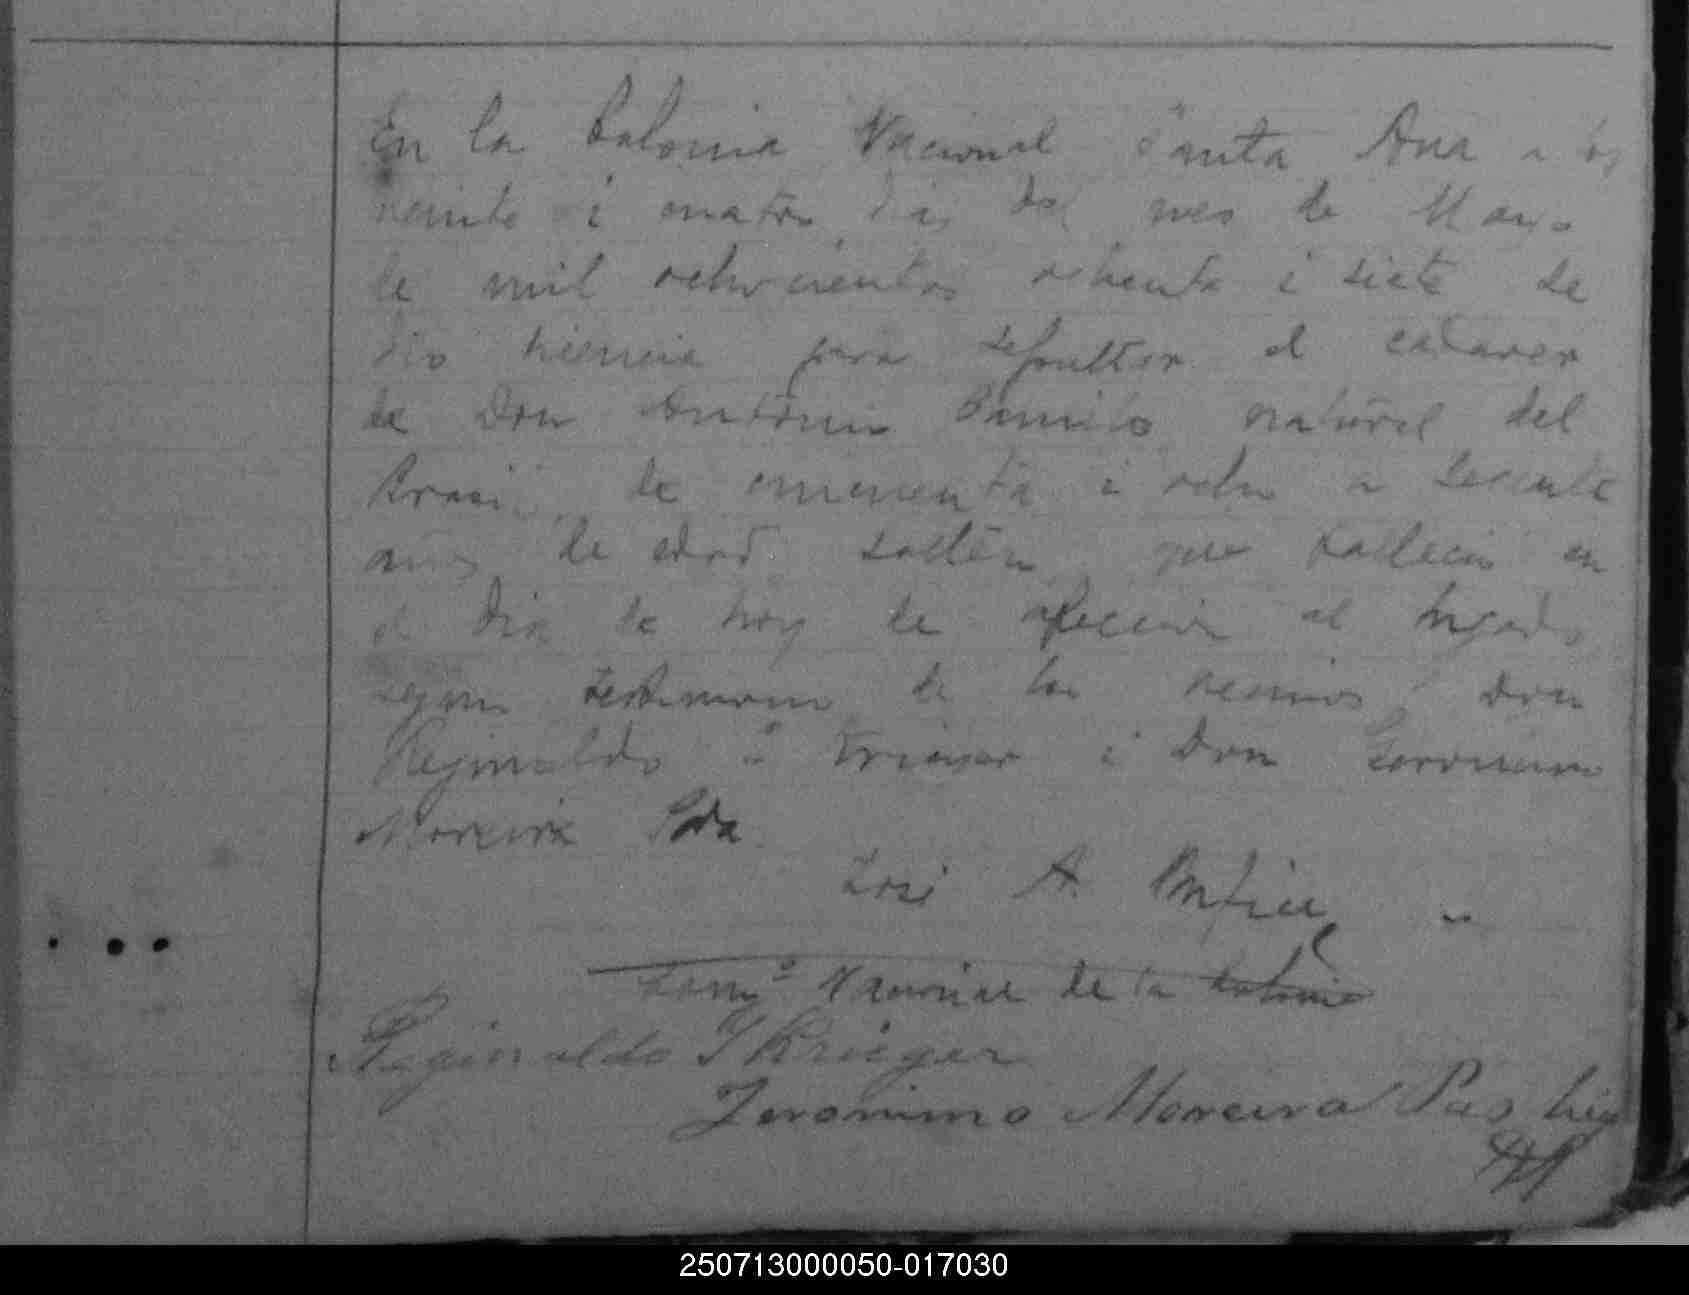 En la Colonia Nacional Santa Ana a los
veinte i cuatro dias del mes de Mayo
de mil ochocientos ochenta i siete se
dio licencia para sepultar el cadaver
de Don Antonio natural del
Brasil de cincuenta i ocho a sesenta
años de edad soltero que fallecio en
el dia de hoy de afeccion al higado
segun testimonio de los vecinos Don
Reginaldo Krieger i Don Geronimo
Moreira
José A.
Nacional de la Colonia
Reginaldo Krieger
Jeronimo Moreira
250713000050-017030